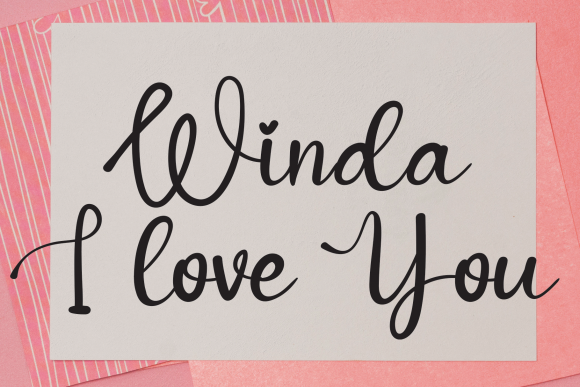 Winda
I love You